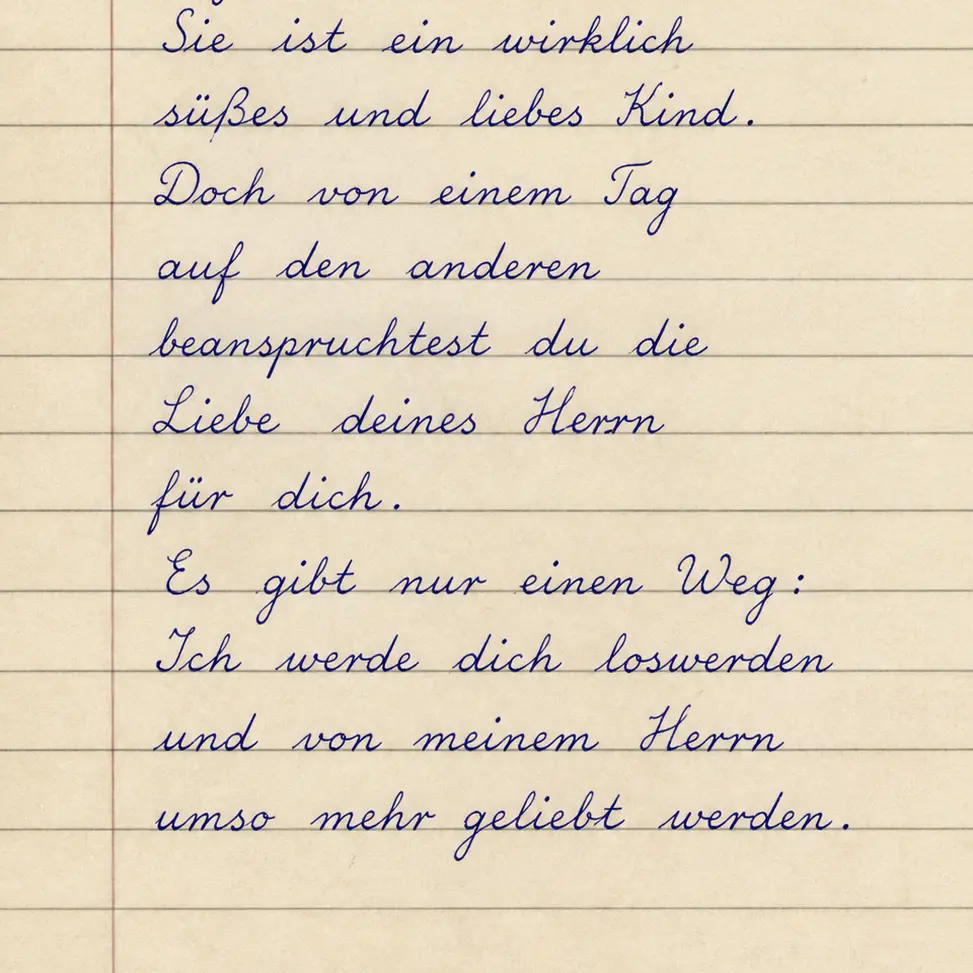 Sie ist ein wirklich
süßes und liebes Kind.
Doch von einem Tag
auf den anderen
beanspruchtest du die
Liebe deines Herrn
für dich.
Es gibt nur einen Weg:
Ich werde dich loswerden
und von meinem Herrn
umso mehr geliebt werden.